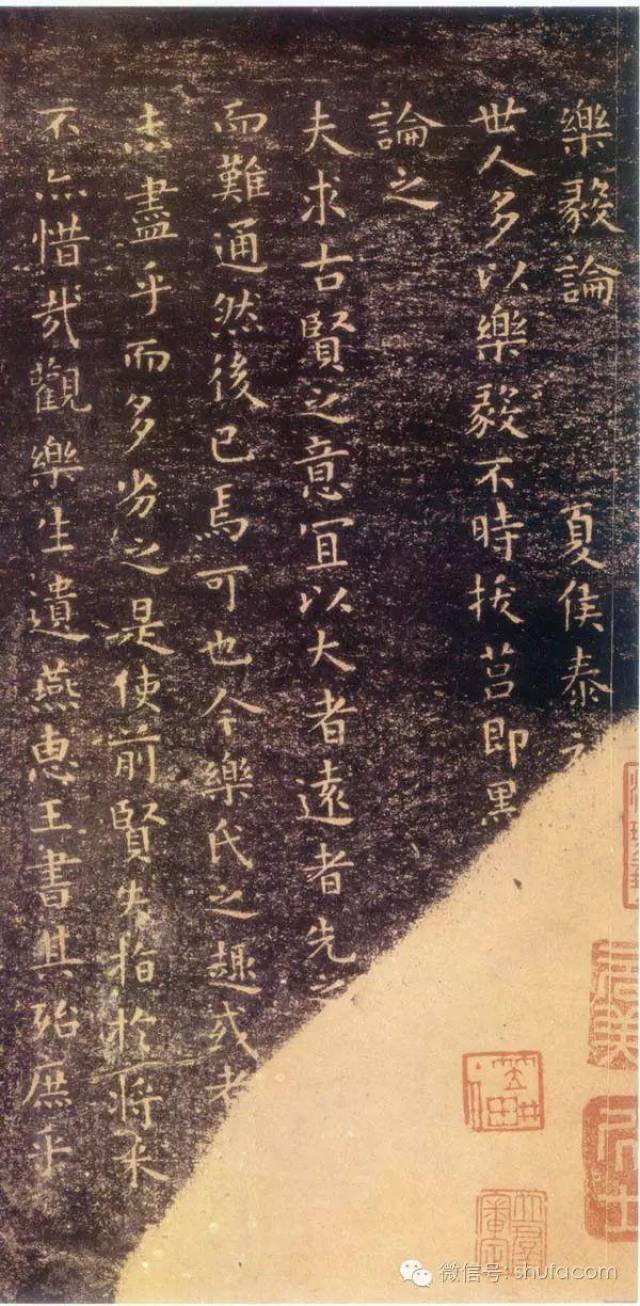 樂毅論 夏侯泰
世人多以樂毅不時拔莒即墨
論之
夫求古賢之意宜以大者遠者先之
而難通然後已焉可也今樂氏之趣或者
未盡乎而多劣之是使前賢失指於將來
不亦惜哉觀樂生遺燕惠王書其殆庶乎
微信号: shufacom